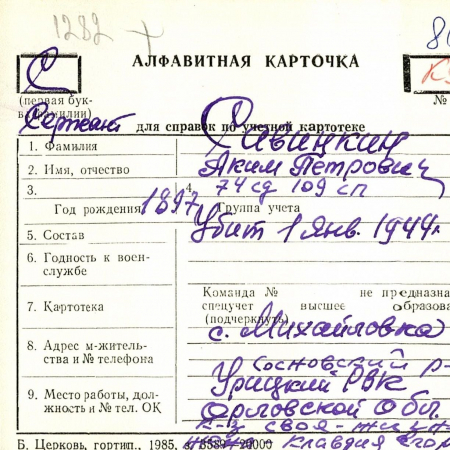 1282
80
АЛФАВИТНАЯ КАРТОЧКА
С
(первая бук-
ва фамилии)
№
Сержант для справок по учетной картотеке
1. Фамилия Савинкин
2. Имя, отчество Аким Петрович
3. 4. 74 сд 109 сп
Год рождения 1897 Группа учета
5. Состав Убит 1 Янв. 1944г.
6. Годность к воен-
службе
Команда № не предназна
7. Картотека спецучет высшее образова
(подчеркнуть)
с. Михайловка
8. Адрес м-житель-
ства и № телефона Сосновский р-
Урицкий РВК
9. Место работы, дол-
жность и № тел. ОК Орловской Обл.
Б. Церковь, гортип., 1985, з. 5589-20000
Клавдия Егор